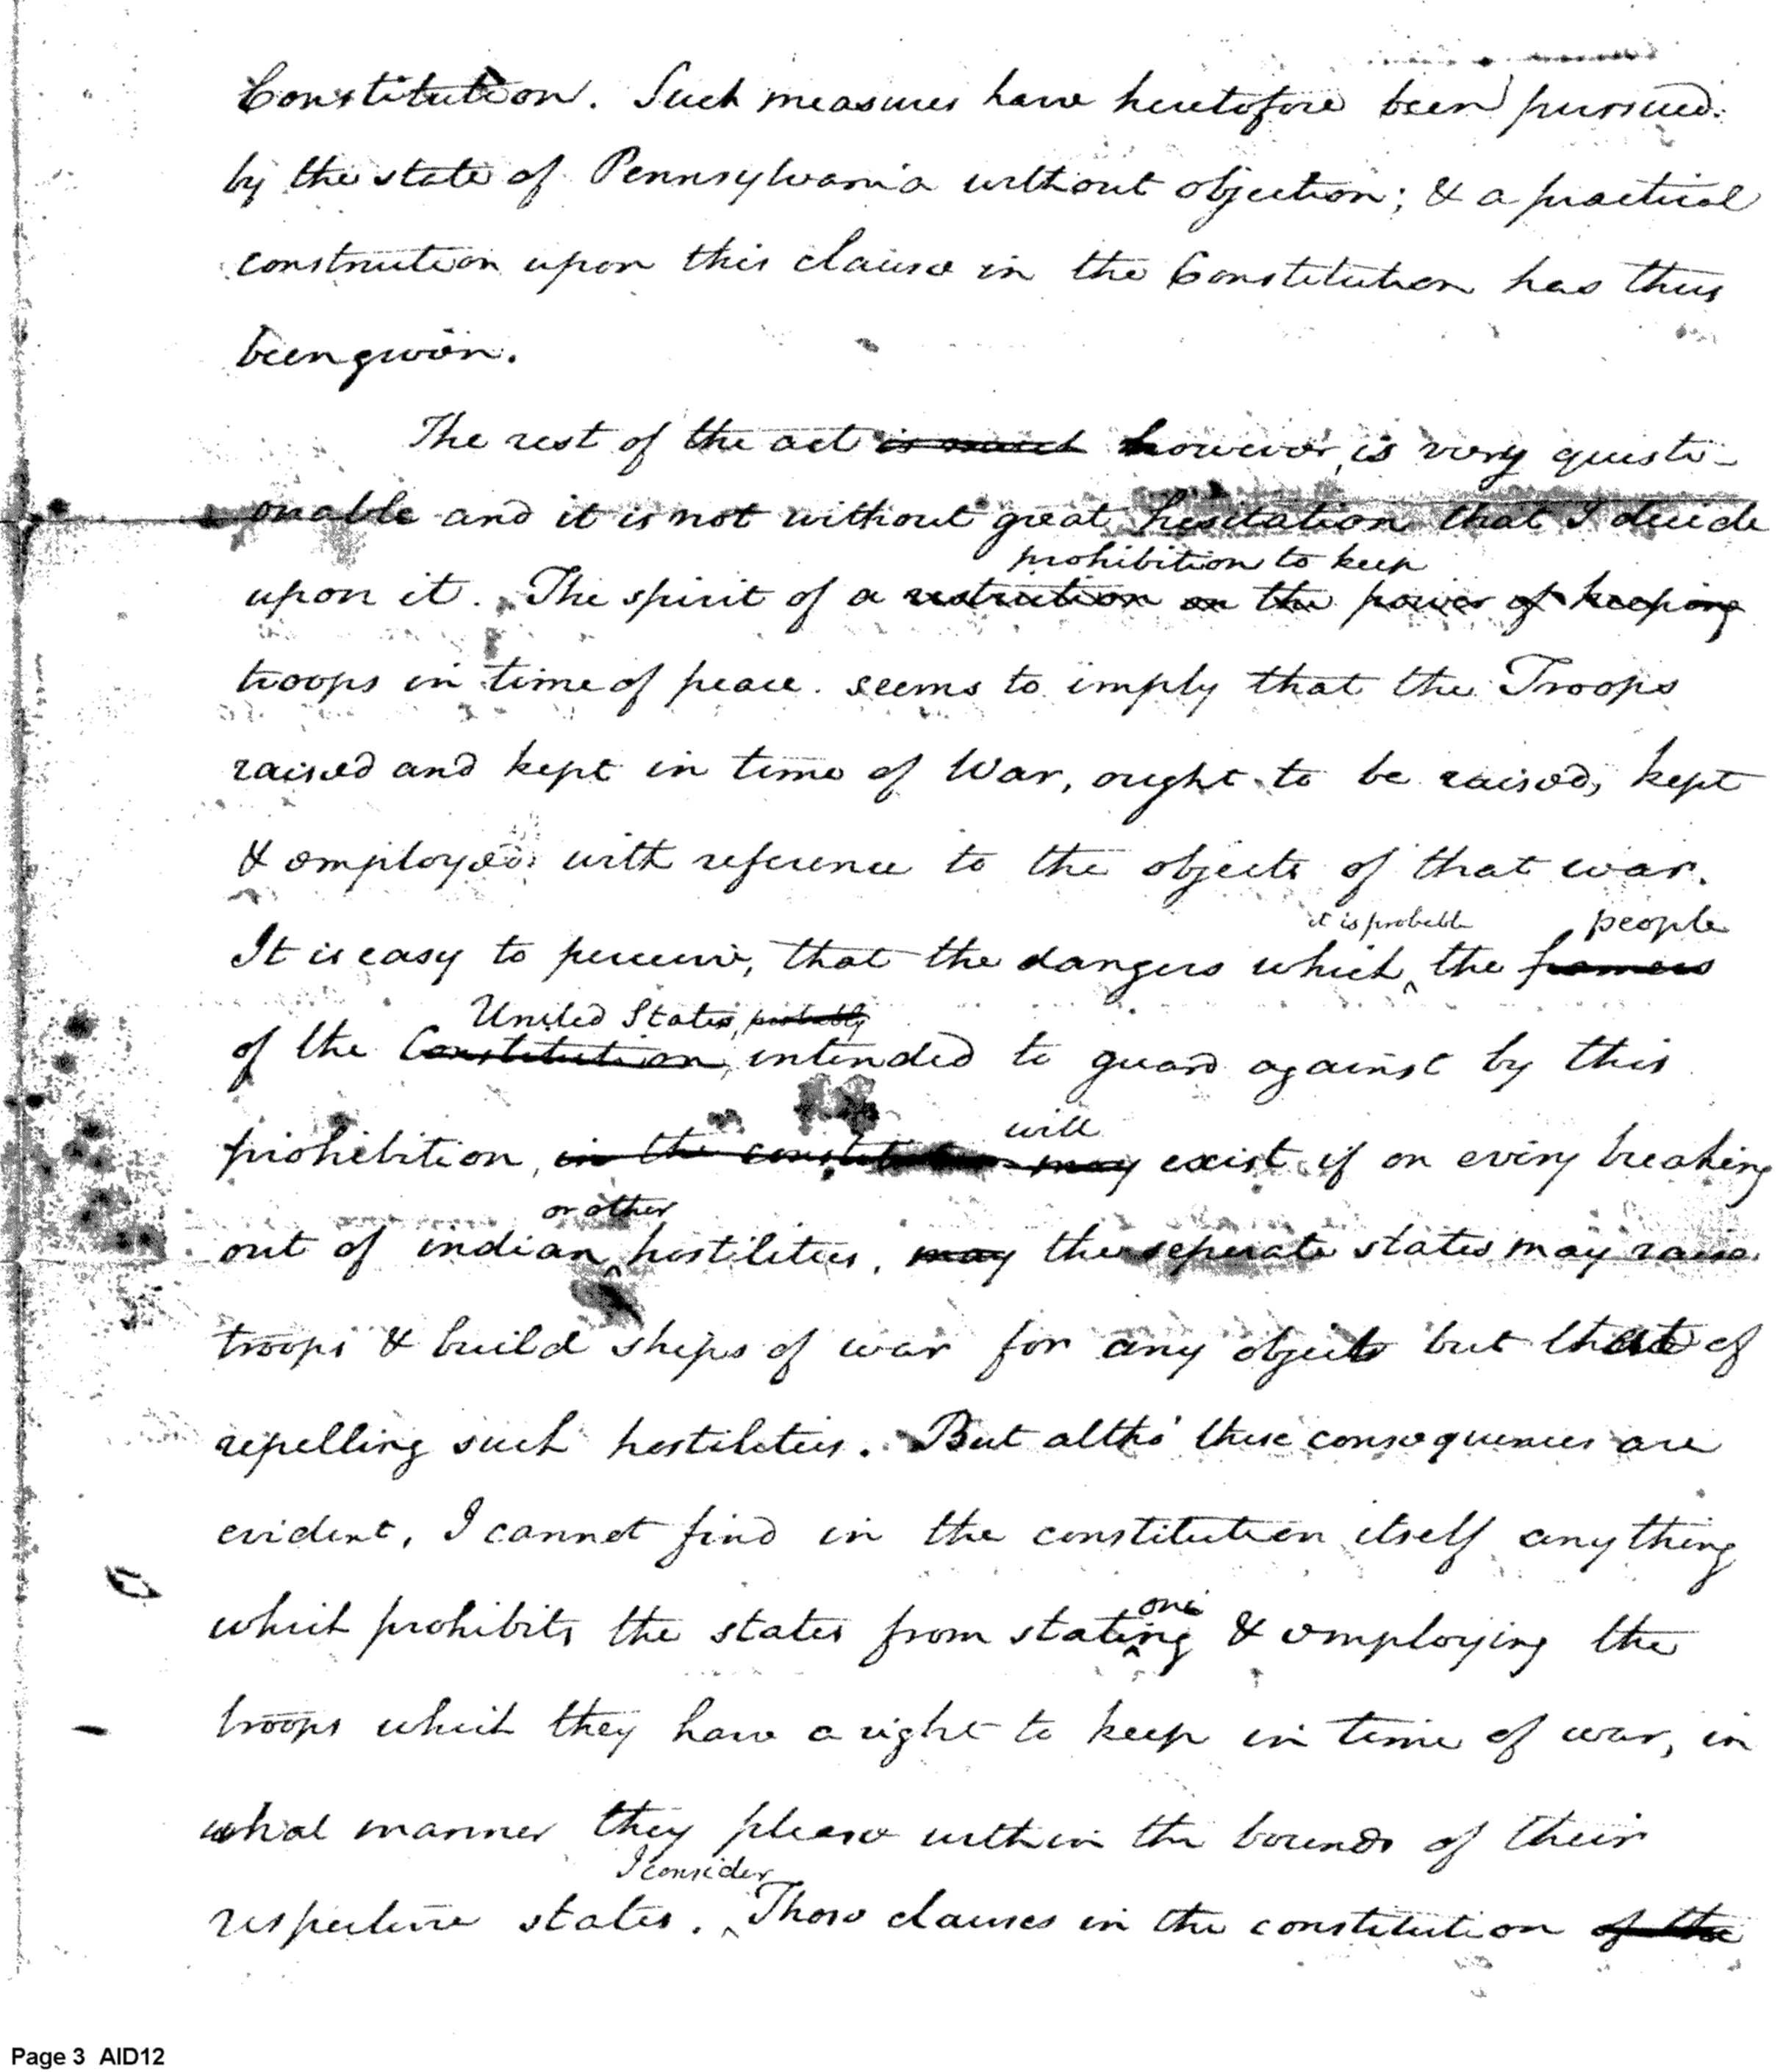 Constitution. Such measures have heretofore been pursued
by the state of Pennsylvania without objection; & a practical
construction upon this clause in the Constitution has thus
been given.
The rest of the act is much however, is very questi-
onable and it is not without great hesitation that I decide
prohibition to keep
upon it. The spirit of a restriction on the power of keeping
troops in time of peace. seems to imply that the Troops
raised and kept in time of War, ought to be raised, kept
& employed with reference to the objects of that war.
it is probable people
It is easy to perceive, that the dangers which the framers
United States, probably
of the Constitution, intended to guard against by this
will
prohibition, in the constitution may exist if on every breaking
or other
out of indian hostilities, may the seperate states may raise
troops & build ships of war for any object but that of
repelling such hostilities. But altho' these consequences are
evident, I cannot find in the constitution itself any thing
oni
which prohibits the states from stating & employing the
troops which they have a right to keep in time of war, in
what manner they please within the bounds of their
I consider
respective states. Those clauses in the constitution of the
Page 3 AID12